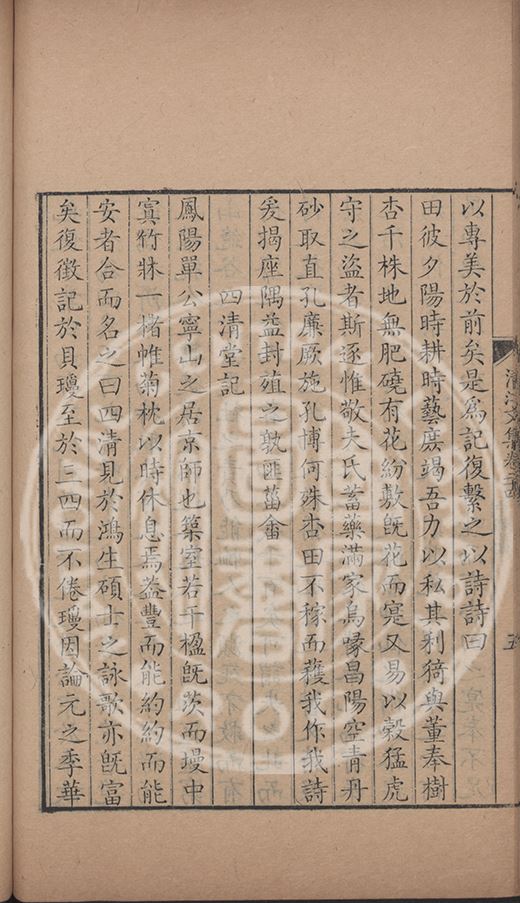 以專美於前矣是爲記復繫之以詩詩曰
田彼夕陽時耕時藝庶竭吾力以私其利猗與董奉樹
杏千株地無肥磽有花紛敷旣花而寔又易以榖猛虎
守之盜者斯逐惟敬夫氏蓄藥滿家烏喙昌陽空青丹
砂取直孔廉厥施孔博何殊杏田不稼而穫我作我詩
爰揭座隅益封殖之孰匪菑畬
四清堂記
鳳陽單公寧山之居京師也築室若干楹旣茨而墁中
寘竹牀一楮帷菊枕以時休息焉葢豐而能約約而能
安者合而名之曰四清見於鴻生碩士之詠歌亦旣富
矣復徵記於貝瓊至於三四而不倦瓊因論元之季華
清江文集卷